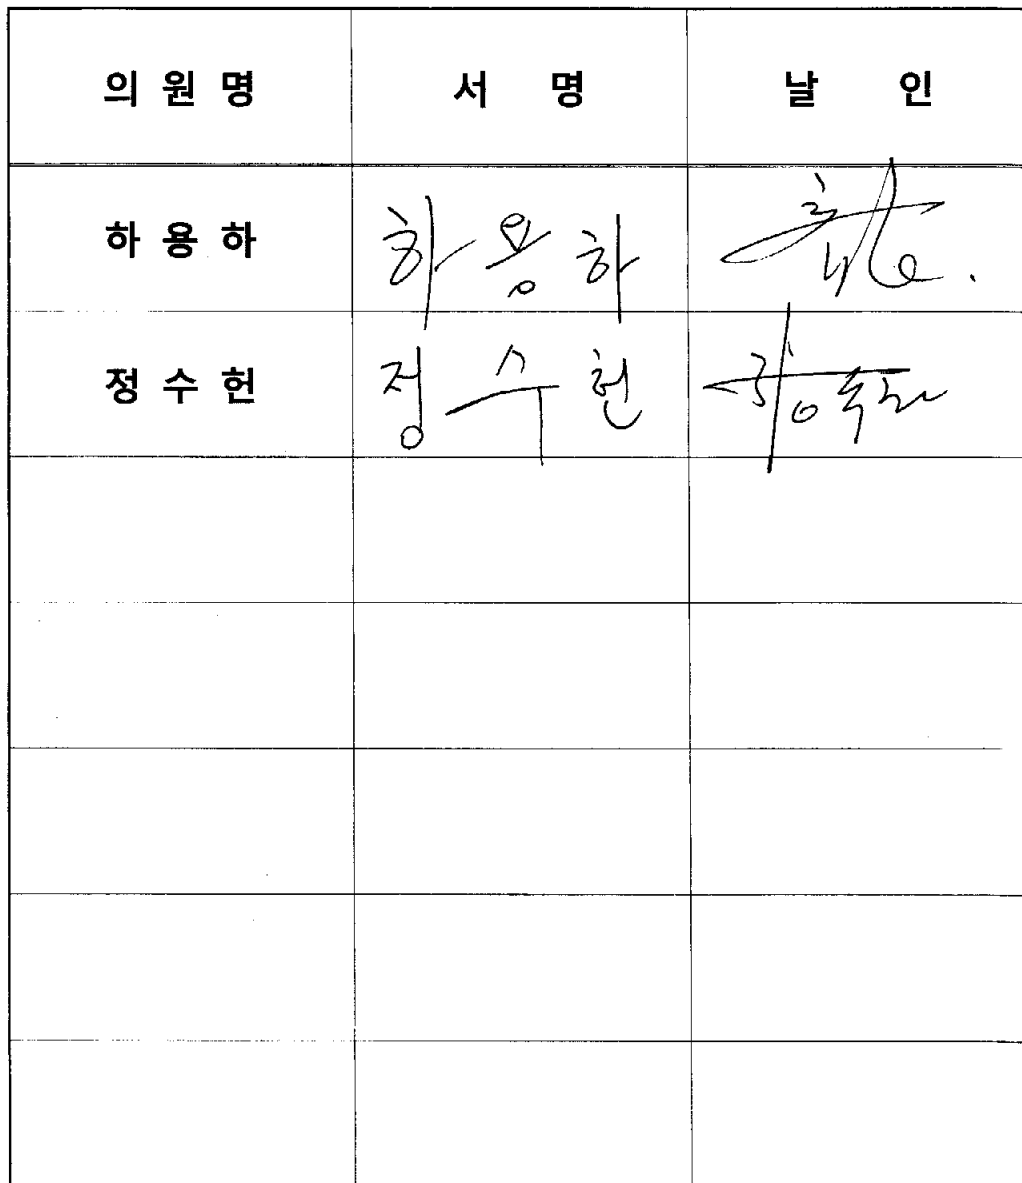 의원명 서 명 날 인
하용하 하용하
정수헌 정수헌